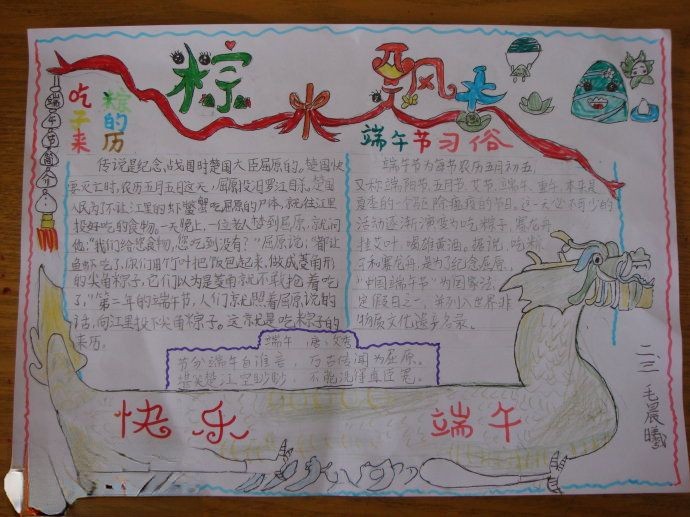 粽米飘来
端午节简介
吃粽
子的
来历
端午节习俗
传说是纪念战国时楚国大臣屈原的。楚国快
要灭亡时,农历五月五日这天,屈原投汨罗江自杀,楚国
人民为了不让江里的虾蟹鳖吃屈原的尸体,就往江里
投好吃的食物。一天晚上,一位老人梦到屈原,就问
他:“我们给您食物,您吃到没有?”屈原说:“都让
鱼虾吃了,你们用竹叶把饭包起来,做成菱角形
的尖角粽子,它们以为是菱角就不敢抢着吃
了。”第二年的端午节,人们就照着屈原说的
话,向江里投下尖角粽子。这就是吃粽子的
来历。
端午节为每节农历五月初五,
又称端阳节、五月节、艾节、端午、重午,本来是
夏季的一个驱除瘟疫的节日。这一天必不可少的
活动逐渐演变为吃粽子,赛龙舟,
挂艾叶,喝雄黄油。据说,吃粽
子和赛龙舟,是为了纪念屈原。
“中国端午节”为国家法
定假日之一,并列入世界非
物质文化遗产名录。
端午 唐:文秀
节分端午自谁言,万古传闻为屈原。
堪笑楚江空渺渺,不能洗得直臣冤。
快乐 端午
二、三 毛晨曦